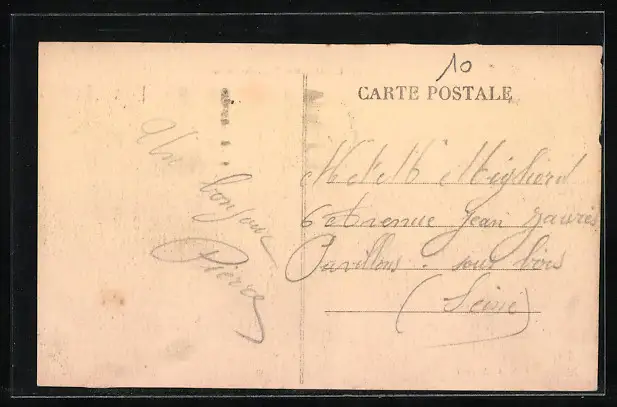 10
CARTE POSTALE
Un bonjour
Pierre
M et M
6 Avenue Jean Jaurès
Pavillons. sous bois
(Seine)